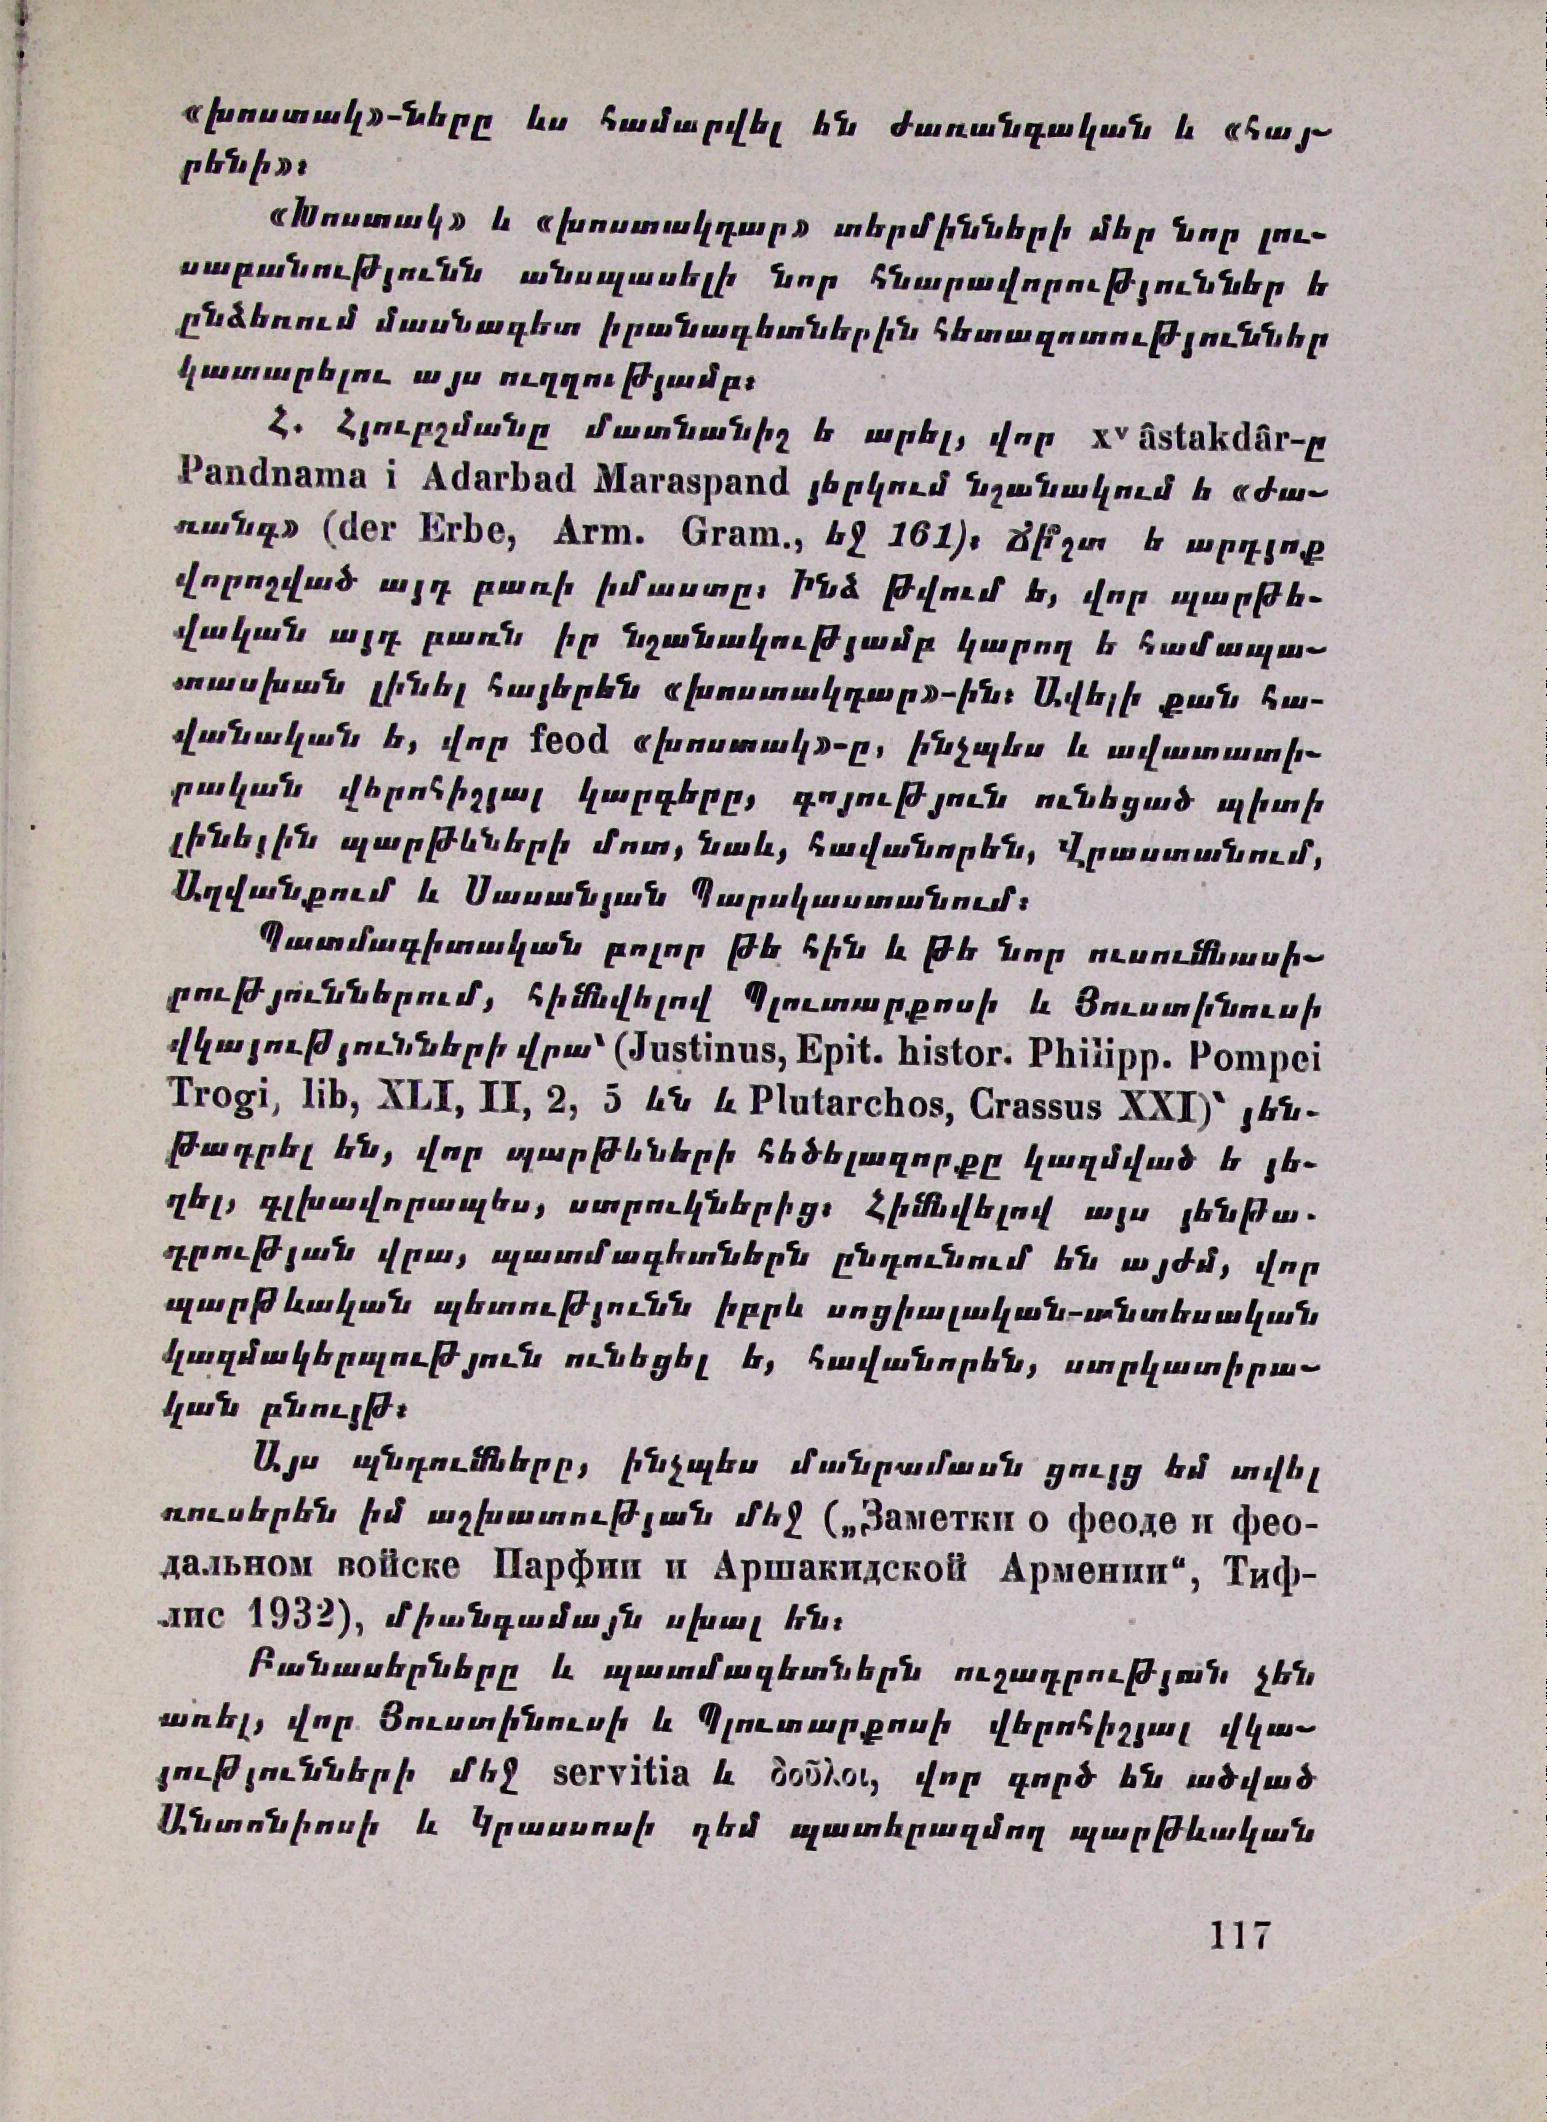 «խոստակ»-ները ևս համարվել են ժառանգական և «հայ-
րենի»։
«Խոստակ» և «խոստակդար» տերմինների մեր նոր լու-
սաբանությունն անսպասելի նոր հնարավորություններ ե
ընձեռում մասնագետ իրանագետներին հետազոտություններ
կատարելու այս ուղղությամբ։
Հ. Հյուբշմանը մատնանիշ ե արել, վոր xᵛâstakdâr-ը
Pandnama i Adarbad Maraspand յերկում նշանակում ե «ժա-
ռանգ» (der Erbe, Arm. Gram., եջ 161)։ Ճի՞շտ ե արդյոք
վորոշված այդ բառի իմաստը։ Ինձ թվում ե, վոր պարթե-
վական այդ բառն իր նշանակությամբ կարող ե համապա-
տասխան լինել հայերեն «խոստակդար»-ին։ Ավելի քան հա-
վանական ե, վոր feod «խոստակ»-ը, ինչպես և ավատատի-
րական վերոհիշյալ կարգերը, գոյություն ունեցած պիտի
լինեյին պարթևների մոտ, նաև, հավանորեն, Վրաստանում,
Աղվանքում և Սասանյան Պարսկաստանում։
Պատմագիտական բոլոր թե հին և թե նոր ուսումնասի-
րություններում, հիմնվելով Պլուտարքոսի և Յուստինուսի
վկայությունների վրա՝ (Justinus, Epit. histor. Philipp. Pompei
Trogi, lib, XLI, II, 2, 5 ևն և Plutarchos, Crassus XXI)՝ յեն-
թադրել են, վոր պարթևների հեծելազորքը կազմված ե յե-
ղել, գլխավորապես, ստրուկներից։ Հիմնվելով այս յենթա-
դրության վրա, պատմագետներն ընդունում են այժմ, վոր
պարթևական պետությունն իբրև սոցիալական-տնտեսական
կազմակերպություն ունեցել ե, հավանորեն, ստրկատիրա-
կան բնույթ։
Այս պնդումները, ինչպես մանրամասն ցույց եմ տվել
ռուսերեն իմ աշխատության մեջ („Заметки о феоде и фео-
дальном войске Парфии и Аршакидской Армении“, Тиф-
лис 1932), միանգամայն սխալ են։
Բանասերները և պատմագետներն ուշադրության չեն
առել, վոր Յուստինուսի և Պլուտարքոսի վերոհիշյալ վկա-
յությունների մեջ servitia և δοῦλοι, վոր գործ են ածված
Անտոնիոսի և Կրասսոսի դեմ պատերազմող պարթևական
117